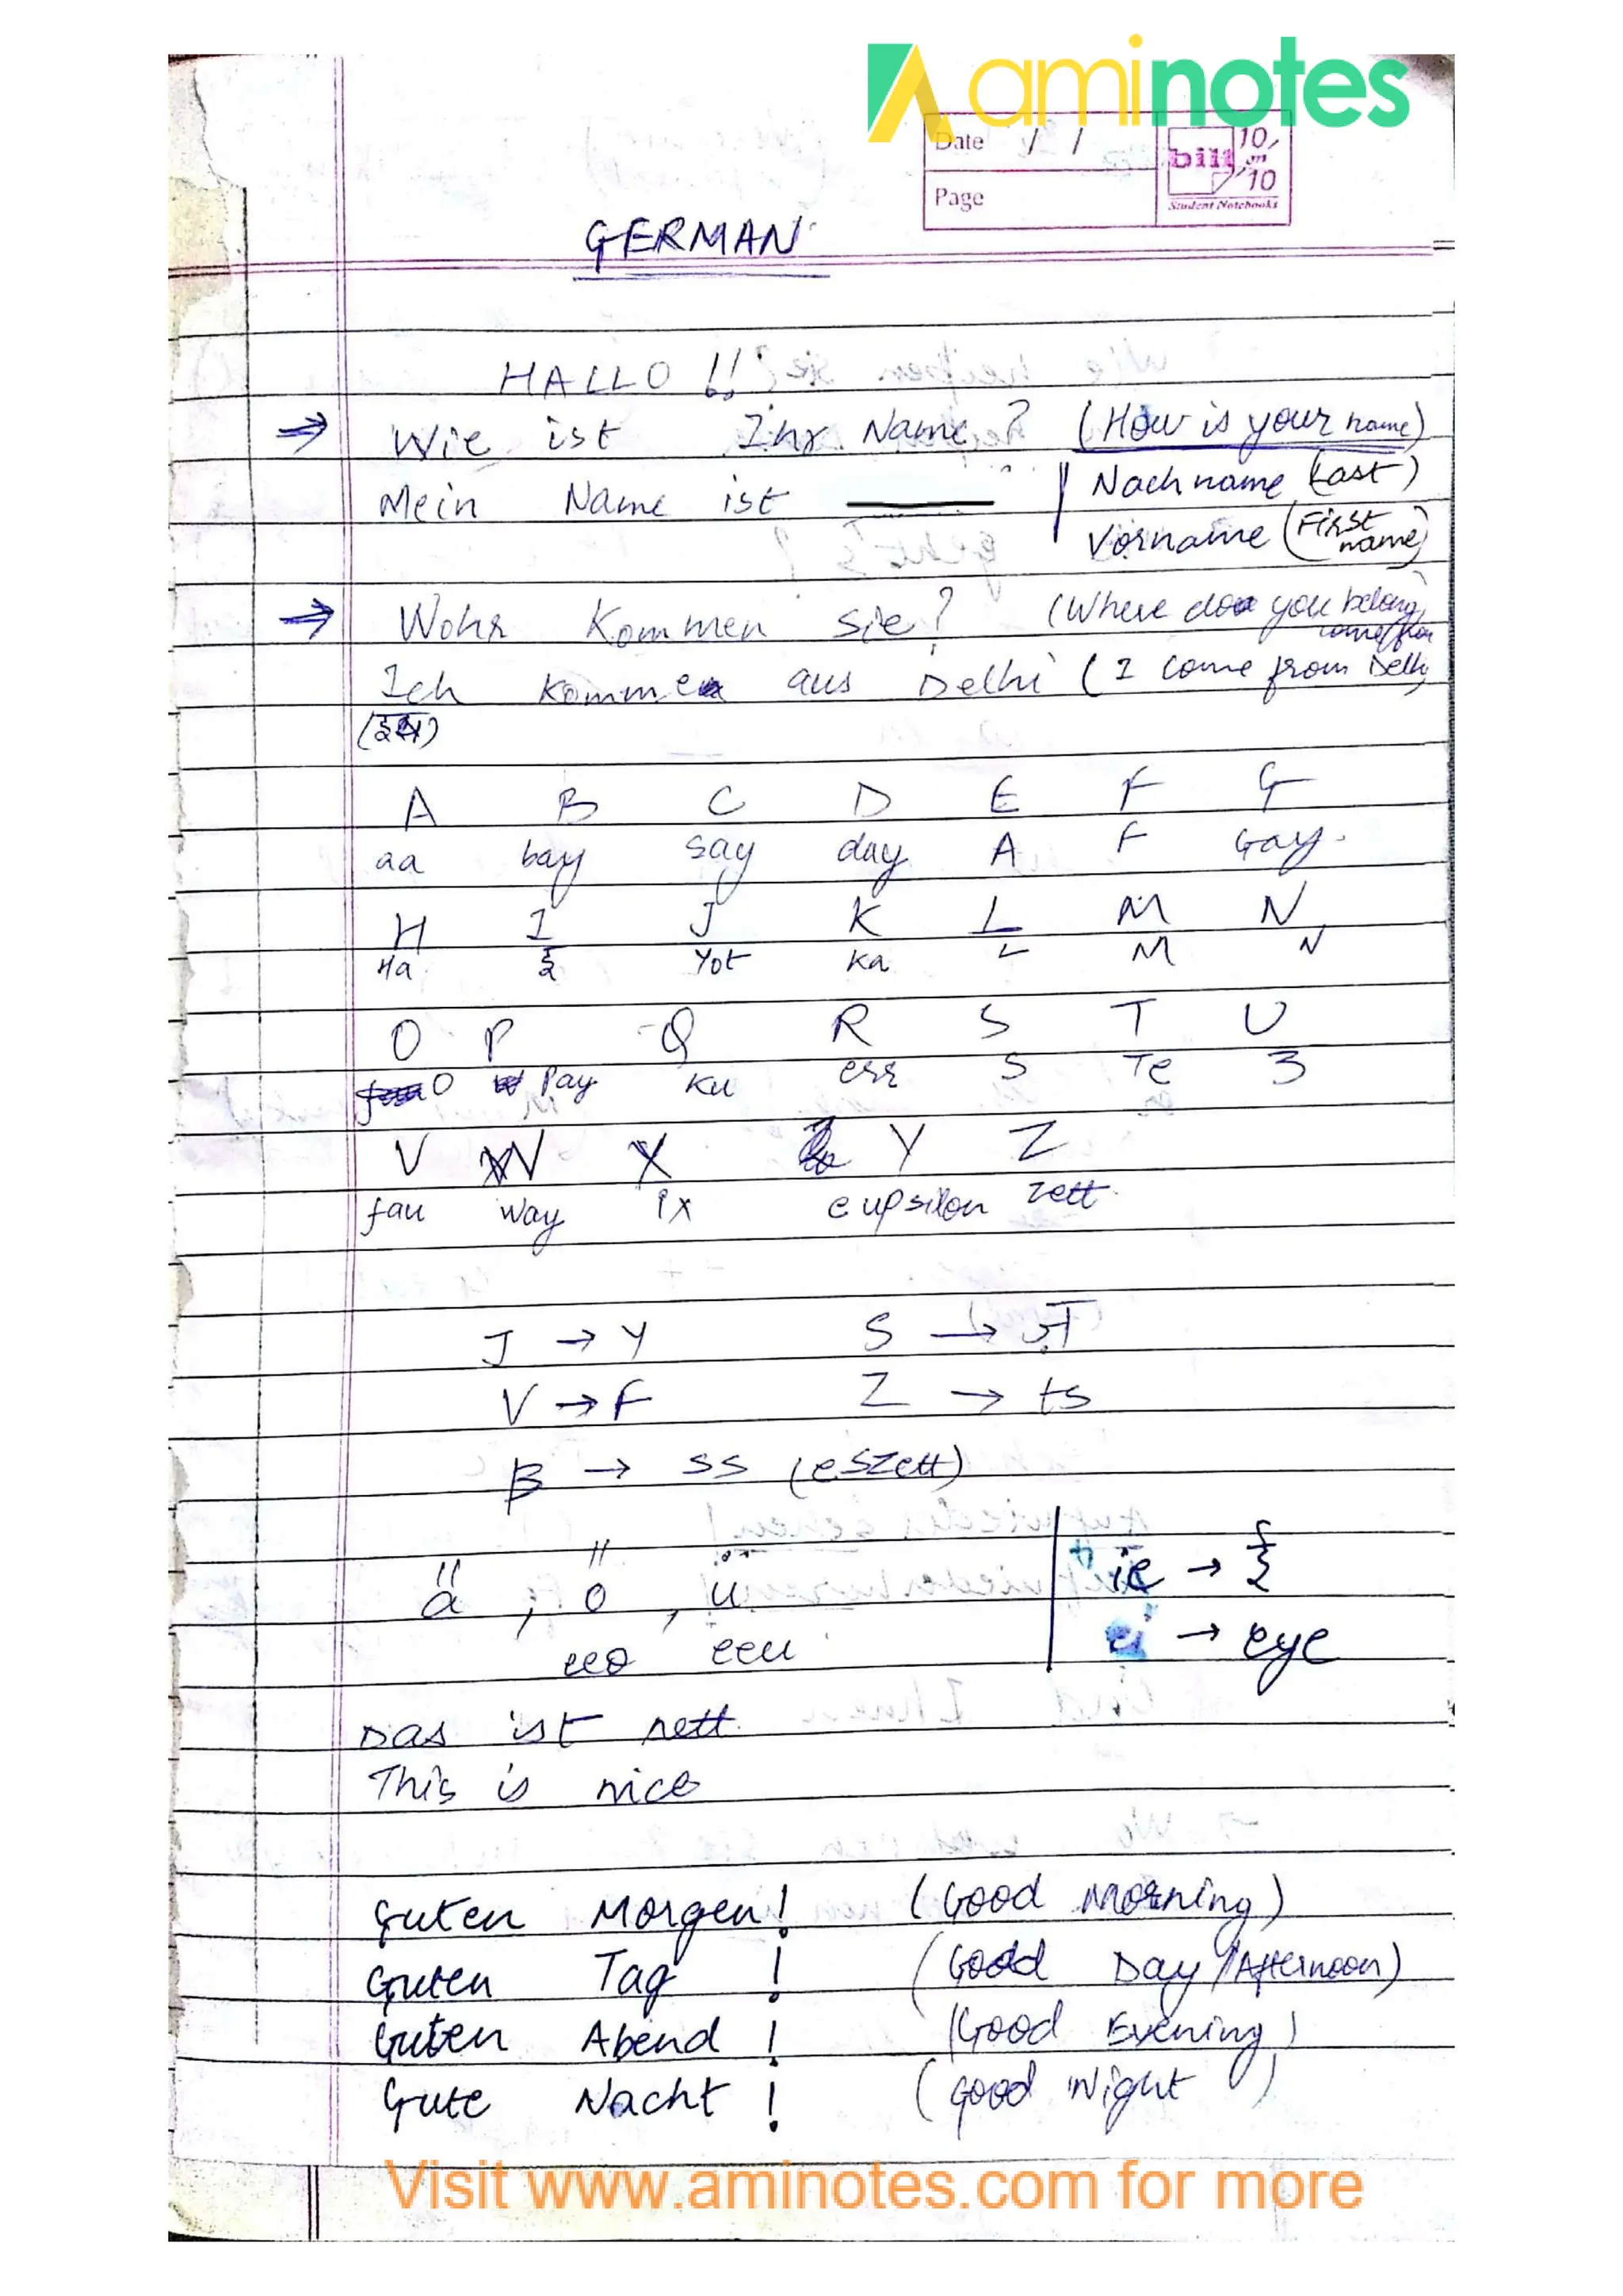 aminotes
Date / /
Page
bilt 10 on 10
Student Notebooks
GERMAN
HALLO !!
⇒ Wie ist Ihr Name? (How is your name)
Mein Name ist ______ | Nachname (Last)
Vorname (First name)
⇒ Wohr Kommen Sie? (Where do you belong, come from
Ich komme aus Delhi (I come from Delhi
A B C D E F G
aa bay say day A F Gay.
H I J K L M N
Ha ई Yot Ka L M N
O P Q R S T U
O Pay Ku err S Te उ
V W X Y Z
fau way ix eupsilon zett.
J → Y S → ज़
V → F Z → ts
ß → ss (eszett)
ä , ö , ü | ie → ई
eeo eeu | ei → eye
Das ist nett.
This is nice
Guten Morgen! (Good Morning)
Guten Tag ! (Good Day/Afternoon)
Guten Abend ! (Good Evening)
Gute Nacht ! (Good Night)
Visit www.aminotes.com for more